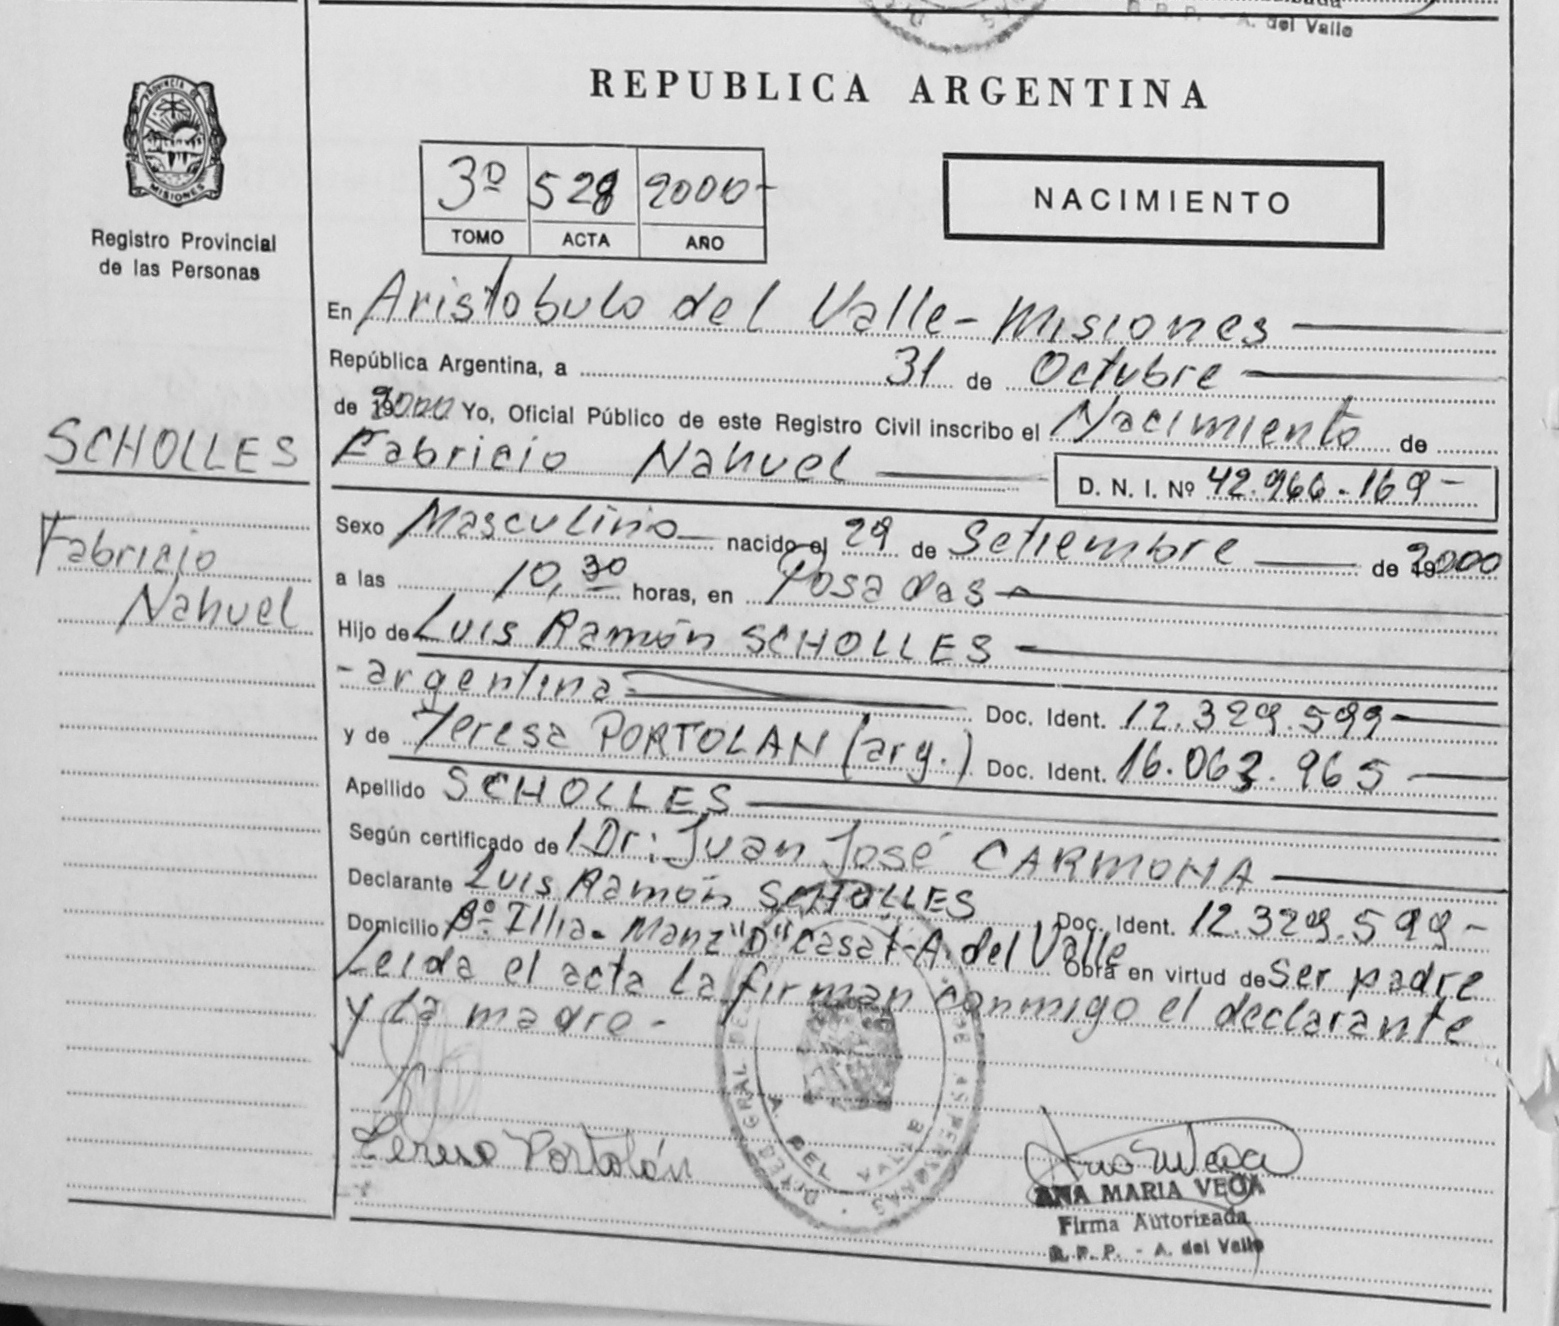 A. del Valle
REPUBLICA ARGENTINA
PROVINCIA DE
MISIONES
Registro Provincial
de las Personas
3º 528 2000-
TOMO ACTA AÑO
NACIMIENTO
En Aristobulo del Valle - Misiones
República Argentina, a 31 de Octubre
de 2000 Yo, Oficial Público de este Registro Civil inscribo el Nacimiento de
Fabricio Nahuel D. N. I. Nº 42.966.169-
SCHOLLES
Fabricio
Nahuel
Sexo Masculino nacido el 29 de Setiembre de 2000
a las 10,30 horas, en Posadas
Hijo de Luis Ramón SCHOLLES
- argentina- Doc. Ident. 12.329.599
y de Teresa PORTOLAN (arg.) Doc. Ident. 16.063.965
Apellido SCHOLLES
Según certificado del Dr: Juan José CARMONA
Declarante Luis Ramón SCHOLLES Doc. Ident. 12.329.599-
Domicilio Bº Illia- Manz "D" Casa 1-A. del Valle Obra en virtud de Ser padre
Leida el acta la firman conmigo el declarante
y la madre-
DIREC GRAL DE LAS PERSONAS
A. DEL VALLE
Teresa Portolán
ANA MARIA VEGA
Firma Autorizada
R. P. P. - A. del Valle